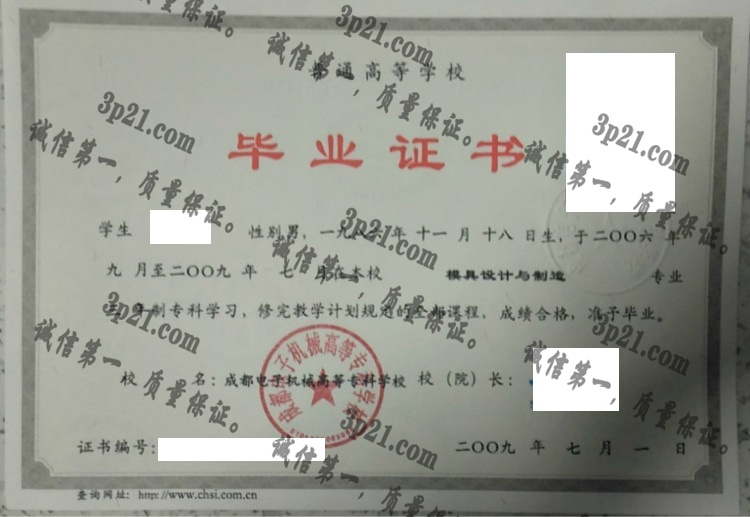 普通高等学校
毕业证书
学生 性别男，一九八六年 十一月 十八日生，于二〇〇六 年
九 月至二〇〇九 年 七 月在本校 模具设计与制造 专业
三 年制专科学习，修完教学计划规定的全部课程，成绩合格，准予毕业。
校 名：成都电子机械高等专科学校 校（院）长：
证书编号： 二〇〇九 年 七 月 一 日
查询网址：http://www.chsi.com.cn
成都电子机械高等专科学校
3p21.com
诚信第一，质量保证。
3p21.com
诚信第一，质量保证。
3p21.com
诚信第一，质量保证。
3p21.com
诚信第一，质量保证。
3p21.com
诚信第一，质量保证。
3p21.com
诚信第一，质量保证。
3p21.com
诚信第一，质量保证。
质量保证。